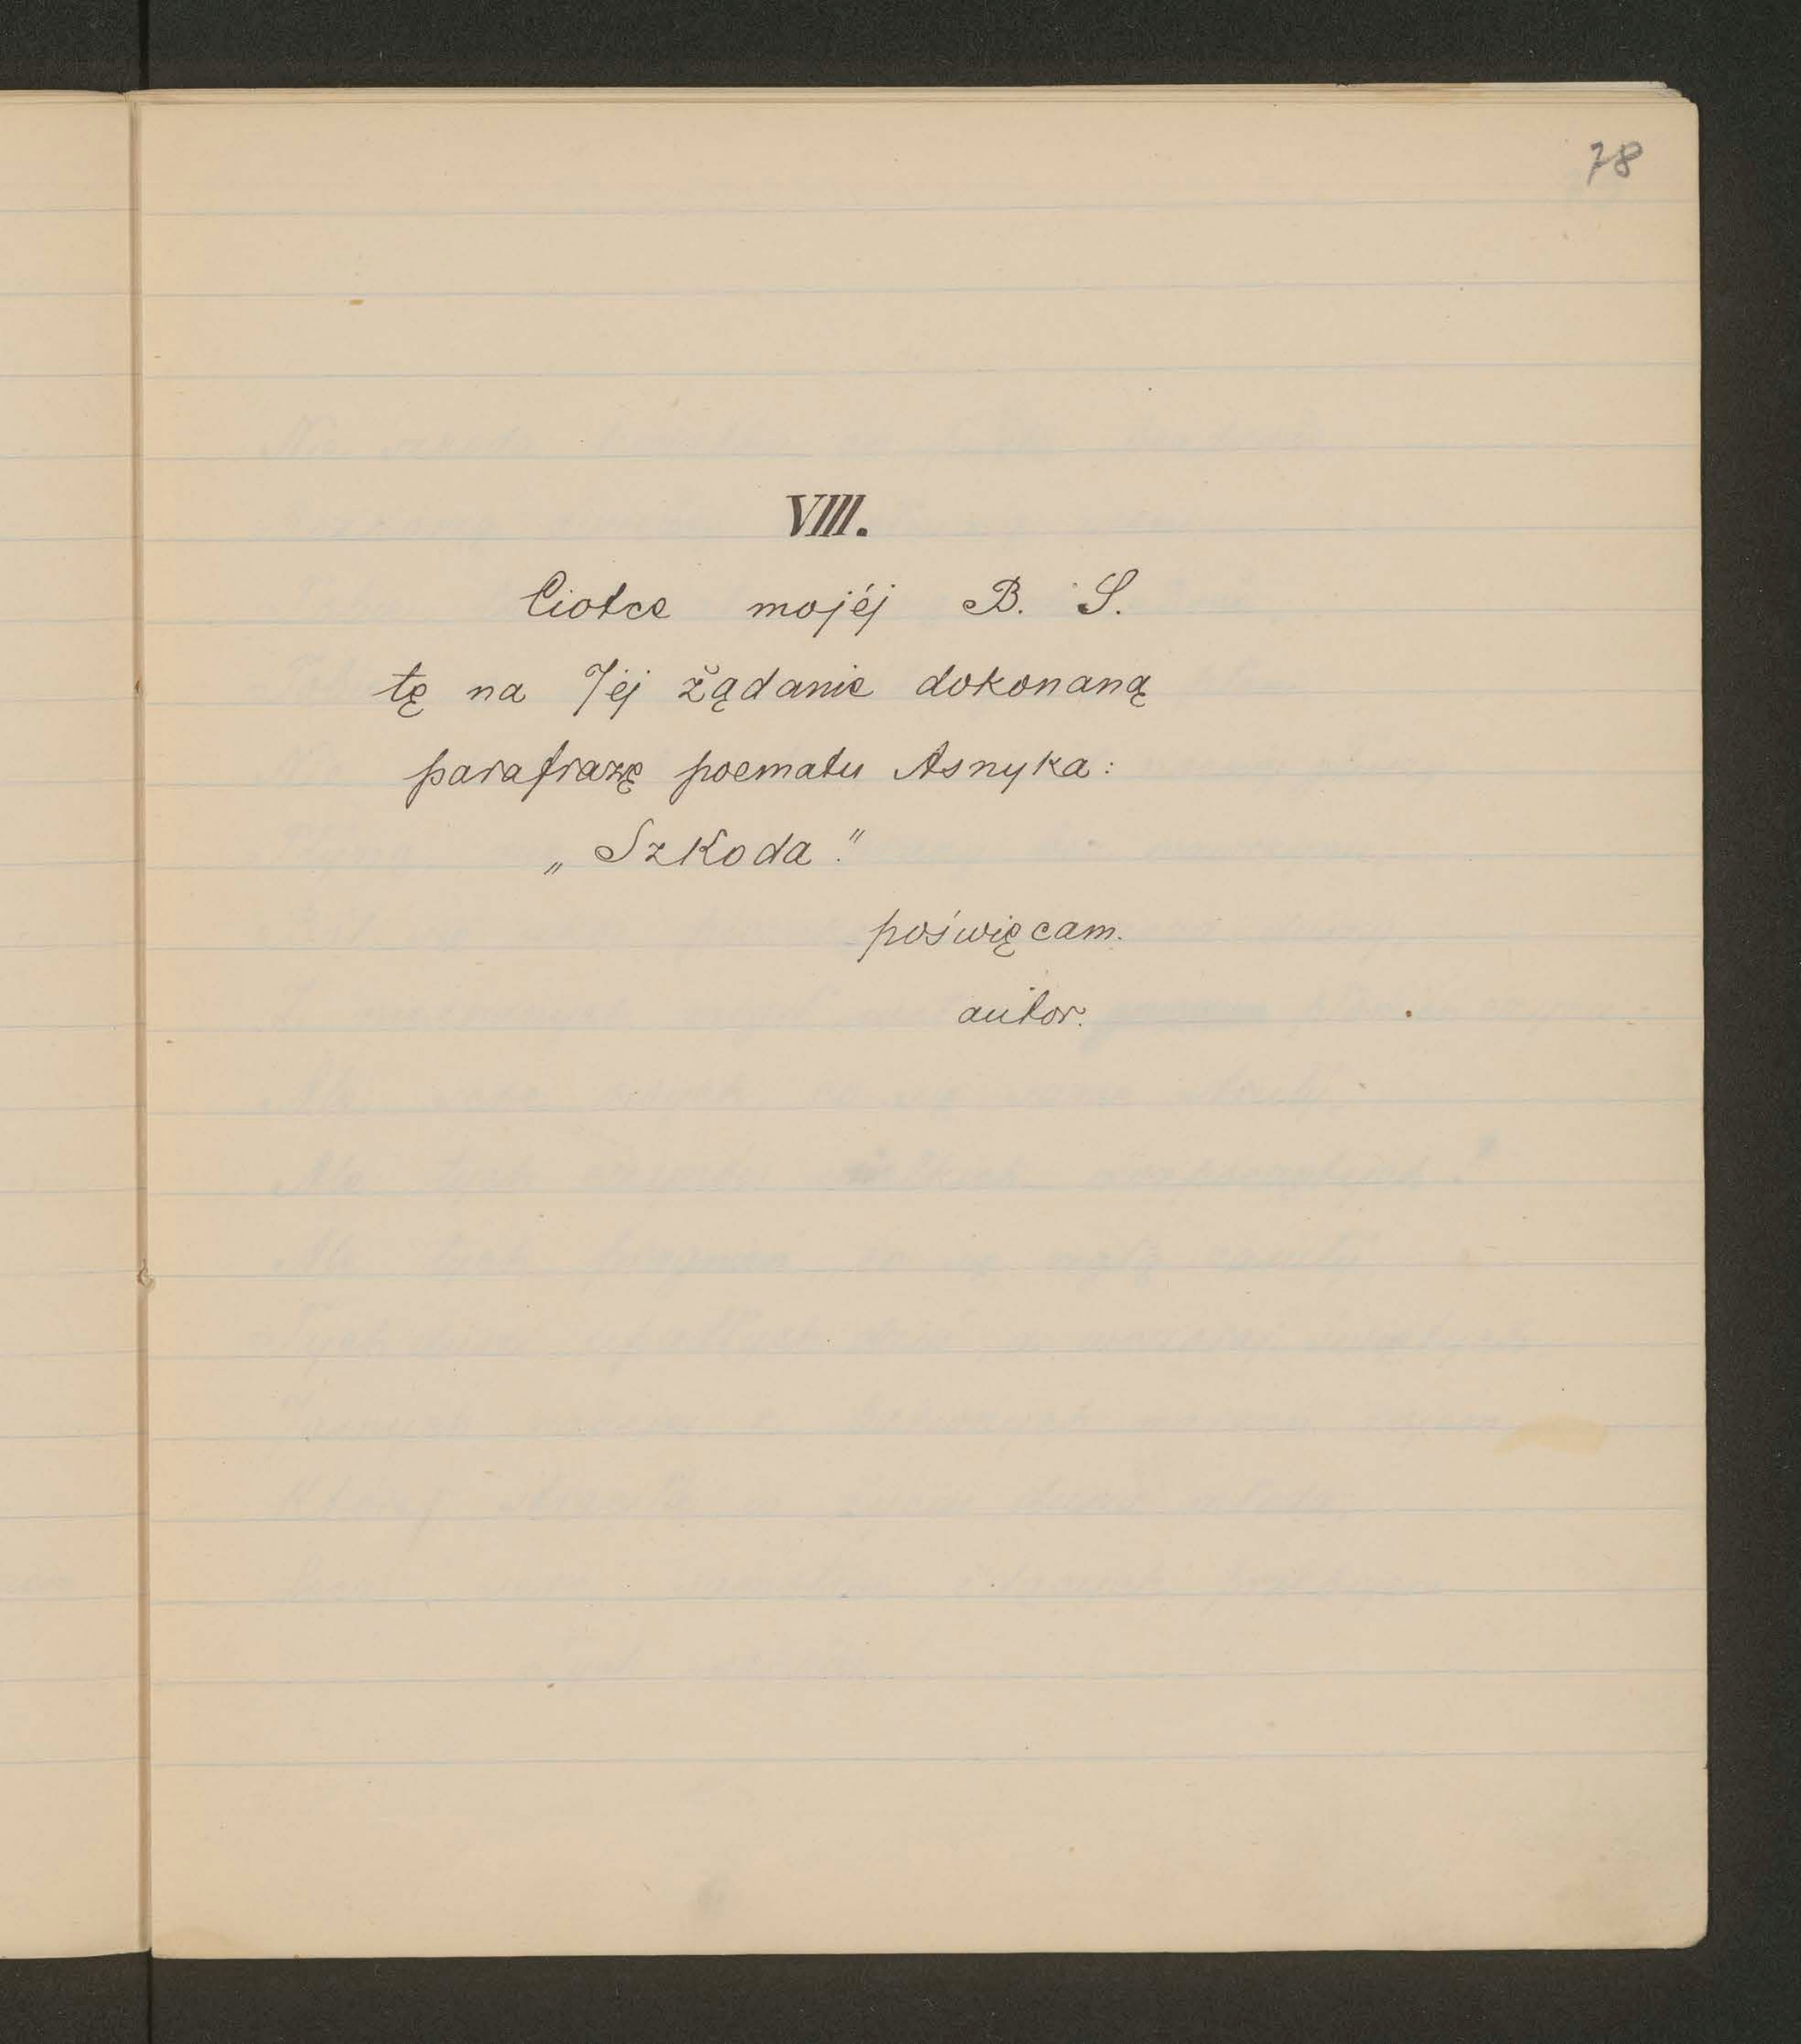 78
VIII.
Ciotce mojéj B. S.
tę na Jéj żądanie dokonaną
parafrazę poematu Asnyka:
„Szkoda."
poświęcam.
autor.